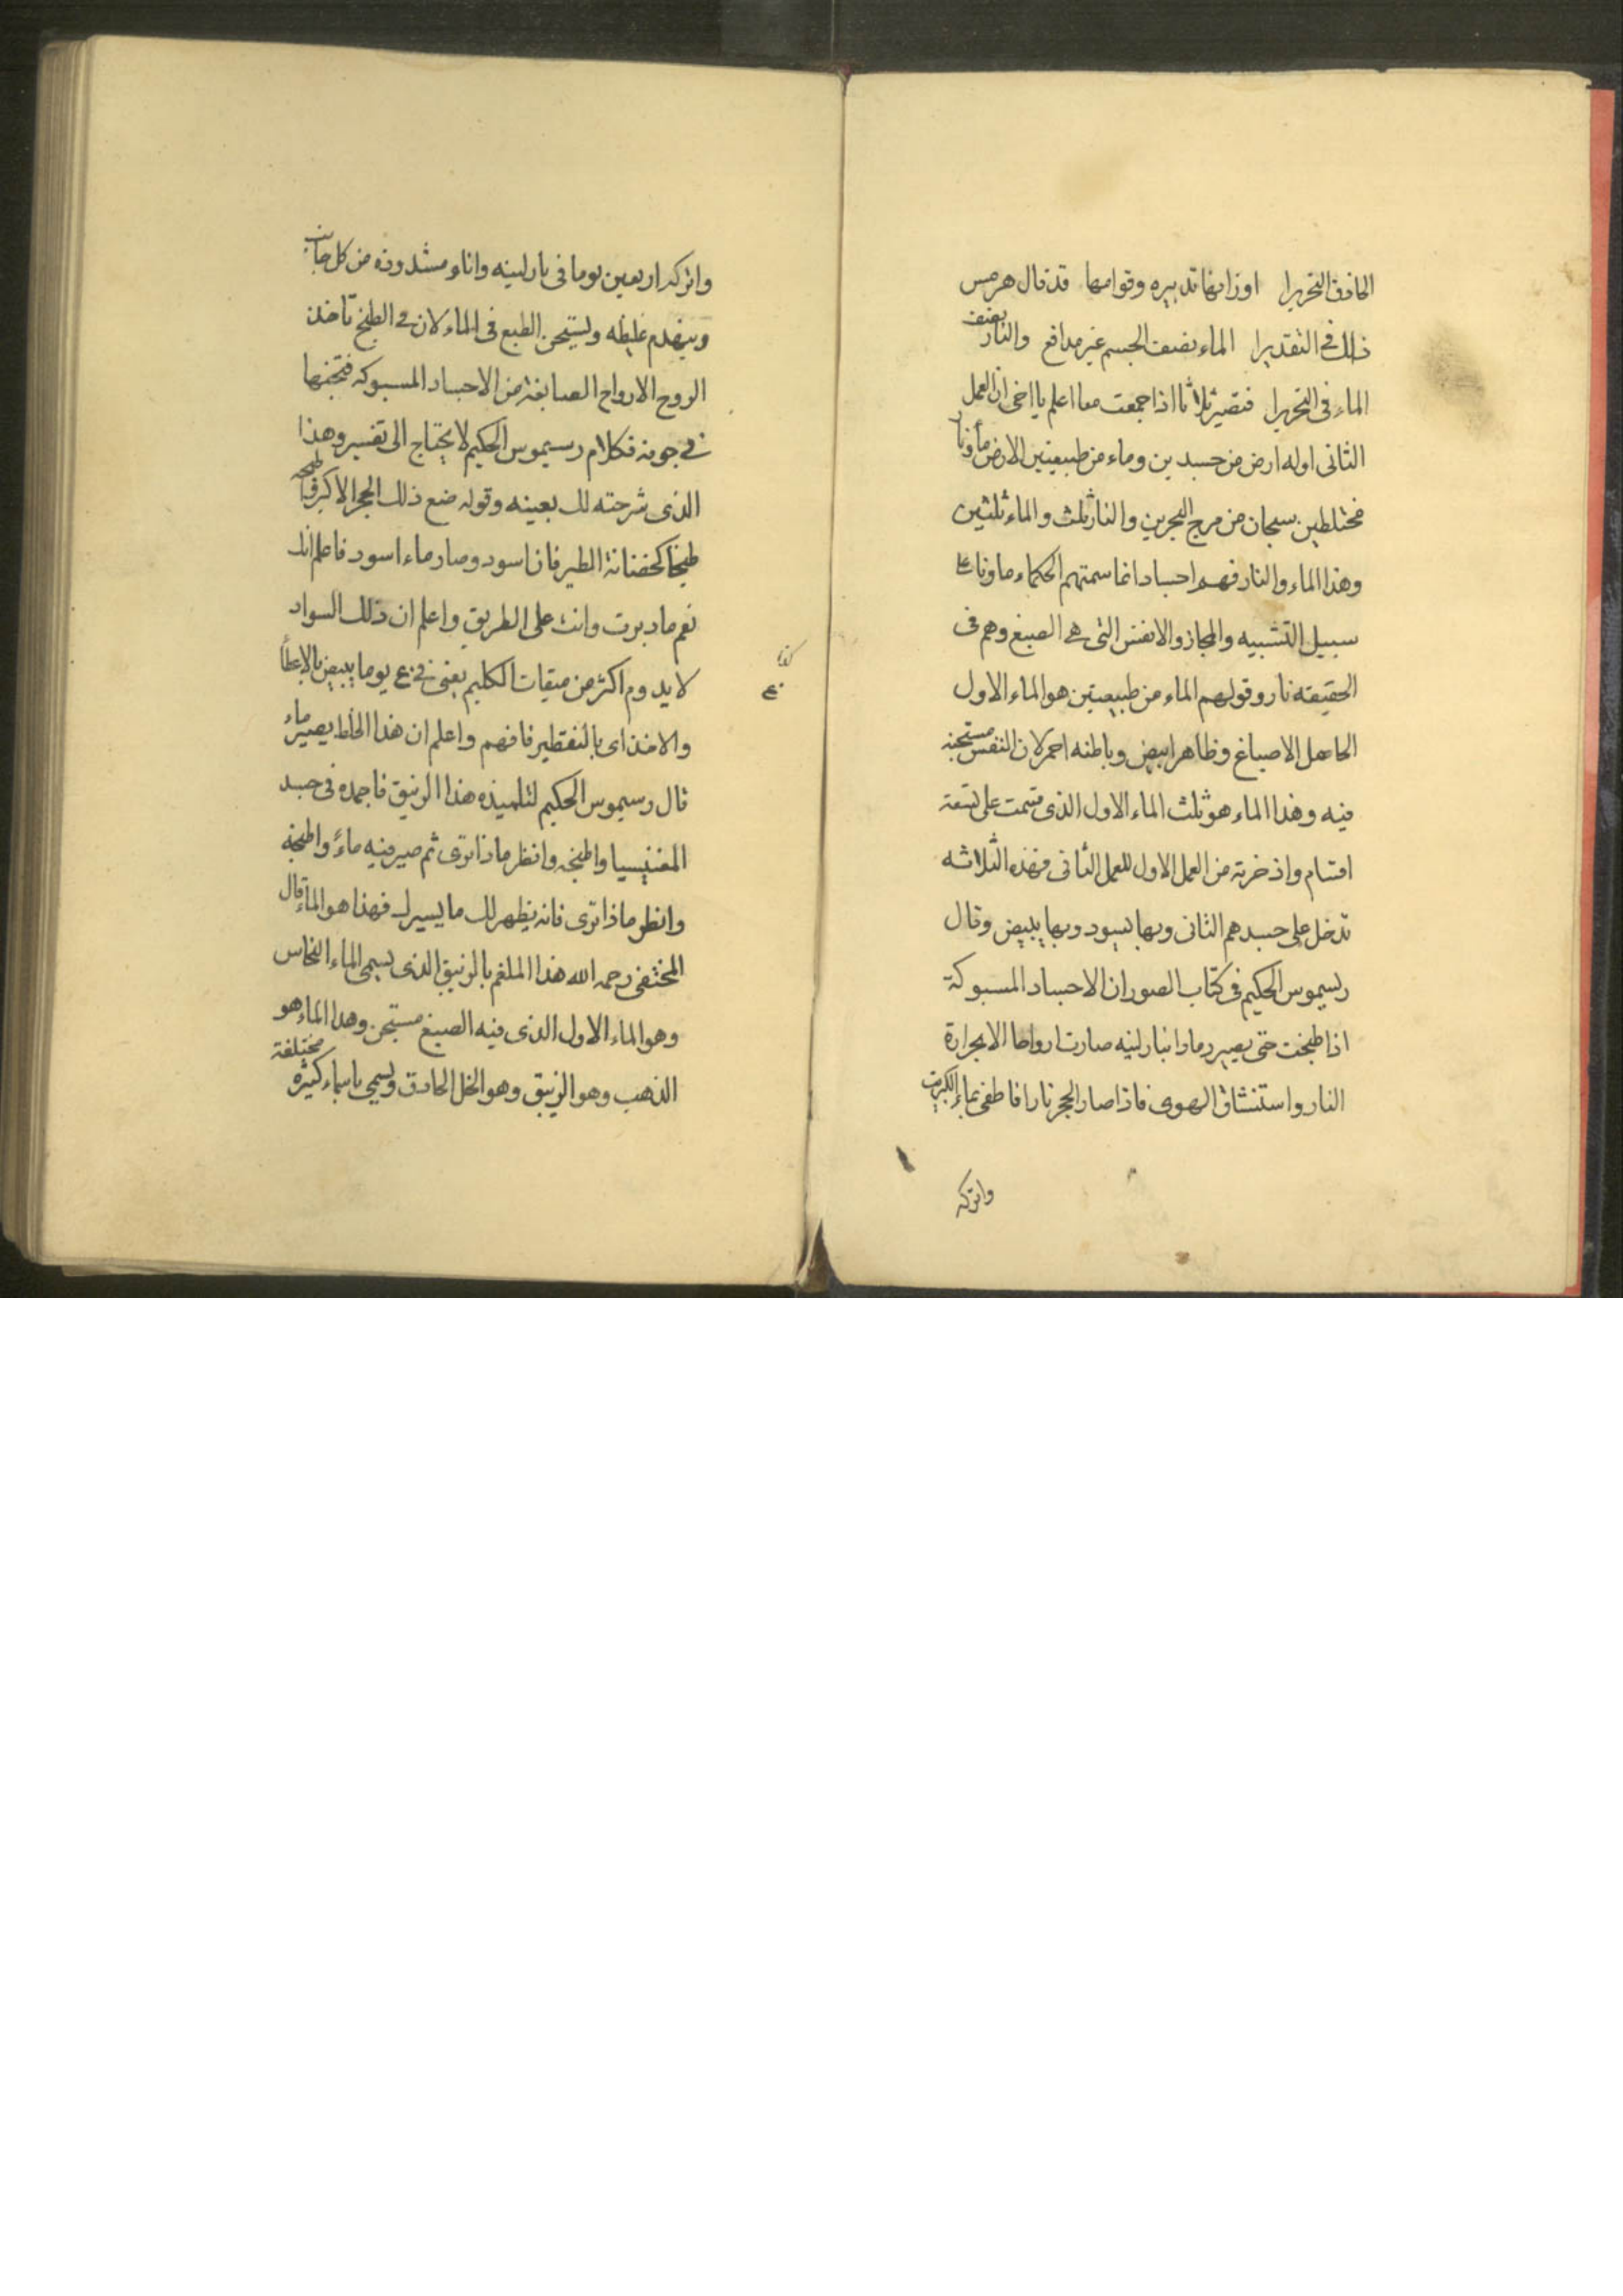 الحاذق النحريرا اوزانها تدبيره وقوامها قد قال هرمس
ذلك في التقديرا الماء نصف الجسم غير مدافع والنار نصف
الماء في التحريرا فتصير ثلاثا اذا جمعت معا اعلم يا اخى ان العمل
الثانى اوله ارض من جسدين وماء من طبيعتين الارض ماء ونار
مختلطين سبحان من مرج البحرين والنار ثلث والماء ثلثين
وهذا الماء والنار فهم اجساد انما سمتهم الحكماء ماء ونارا على
سبيل التشبيه والمجاز والانفس التى هى الصبغ وهم فى
الحقيقه نار وقولهم الماء من طبيعتين هو الماء الاول
الحاصل الاصباغ وظاهر ابيض وباطنه احمر لان النفس مستجنه
فيه وهذا الماء هو ثلث الماء الاول الذى قسمت على تسعة
اقسام واذخرته من العمل الاول للعمل الثانى فهذه الثلاثه
تدخل على جسدهم الثانى وبها يسود وبها يبيض وقال
رسيموس الحكيم فى كتاب الصور ان الاجساد المسبوكة
اذا طبخت حتى يصير رمادا بنار لينه صارت ارواحا الا بحرارة
النار واستنشاق الهوى فاذا صار الحجر نارا فاطفى بماء الكبريت
واتركه
واتركه اربعين يوما فى نار لينه واناء مشدوده من كل جانب
وينهدم غليظه ويستجن الطبع فى الماء لان فى الطبخ تأخذ
الروح الارواح الصابغة من الاجساد المسبوكه فتجنها
فى جوفه فكلام رسيموس الحكيم لا يحتاج الى تفسير وهذا
الذى شرحته لك بعينه وقوله ضع ذلك الحجر الاكبر فى طبخه
طبخا كحضانة الطير فان اسود وصار ماء اسود فاعلم انك
نعم ما دبرت وانت على الطريق واعلم ان ذلك السواد
لا يدوم اكثر من ميقات الكليم يعنى فى ٤٠ يوما يبيض بالاعطأ
والاخذ اى بالتقطير فافهم واعلم ان هذا الخلط يصير ماء
قال رسيموس الحكيم لتلميذه هذا الزيبق فاجمده فى جسد
المغنيسيا واطبخه وانظر ماذا ترى ثم صير فيه ماءً واطبخه
وانظر ماذا ترى فانه يظهر لك ما يسرك فهذا هو الماء قال
المختفى رحمه الله هذا الملغم بالزيبق الذى يسمى الماء النحاس
وهو الماء الاول الذى فيه الصبغ مستجن وهذا الماء هو
الذهب وهو الزيبق وهو الخل الحاذق ويسمى باسماء كثيره مختلفة
٤٠